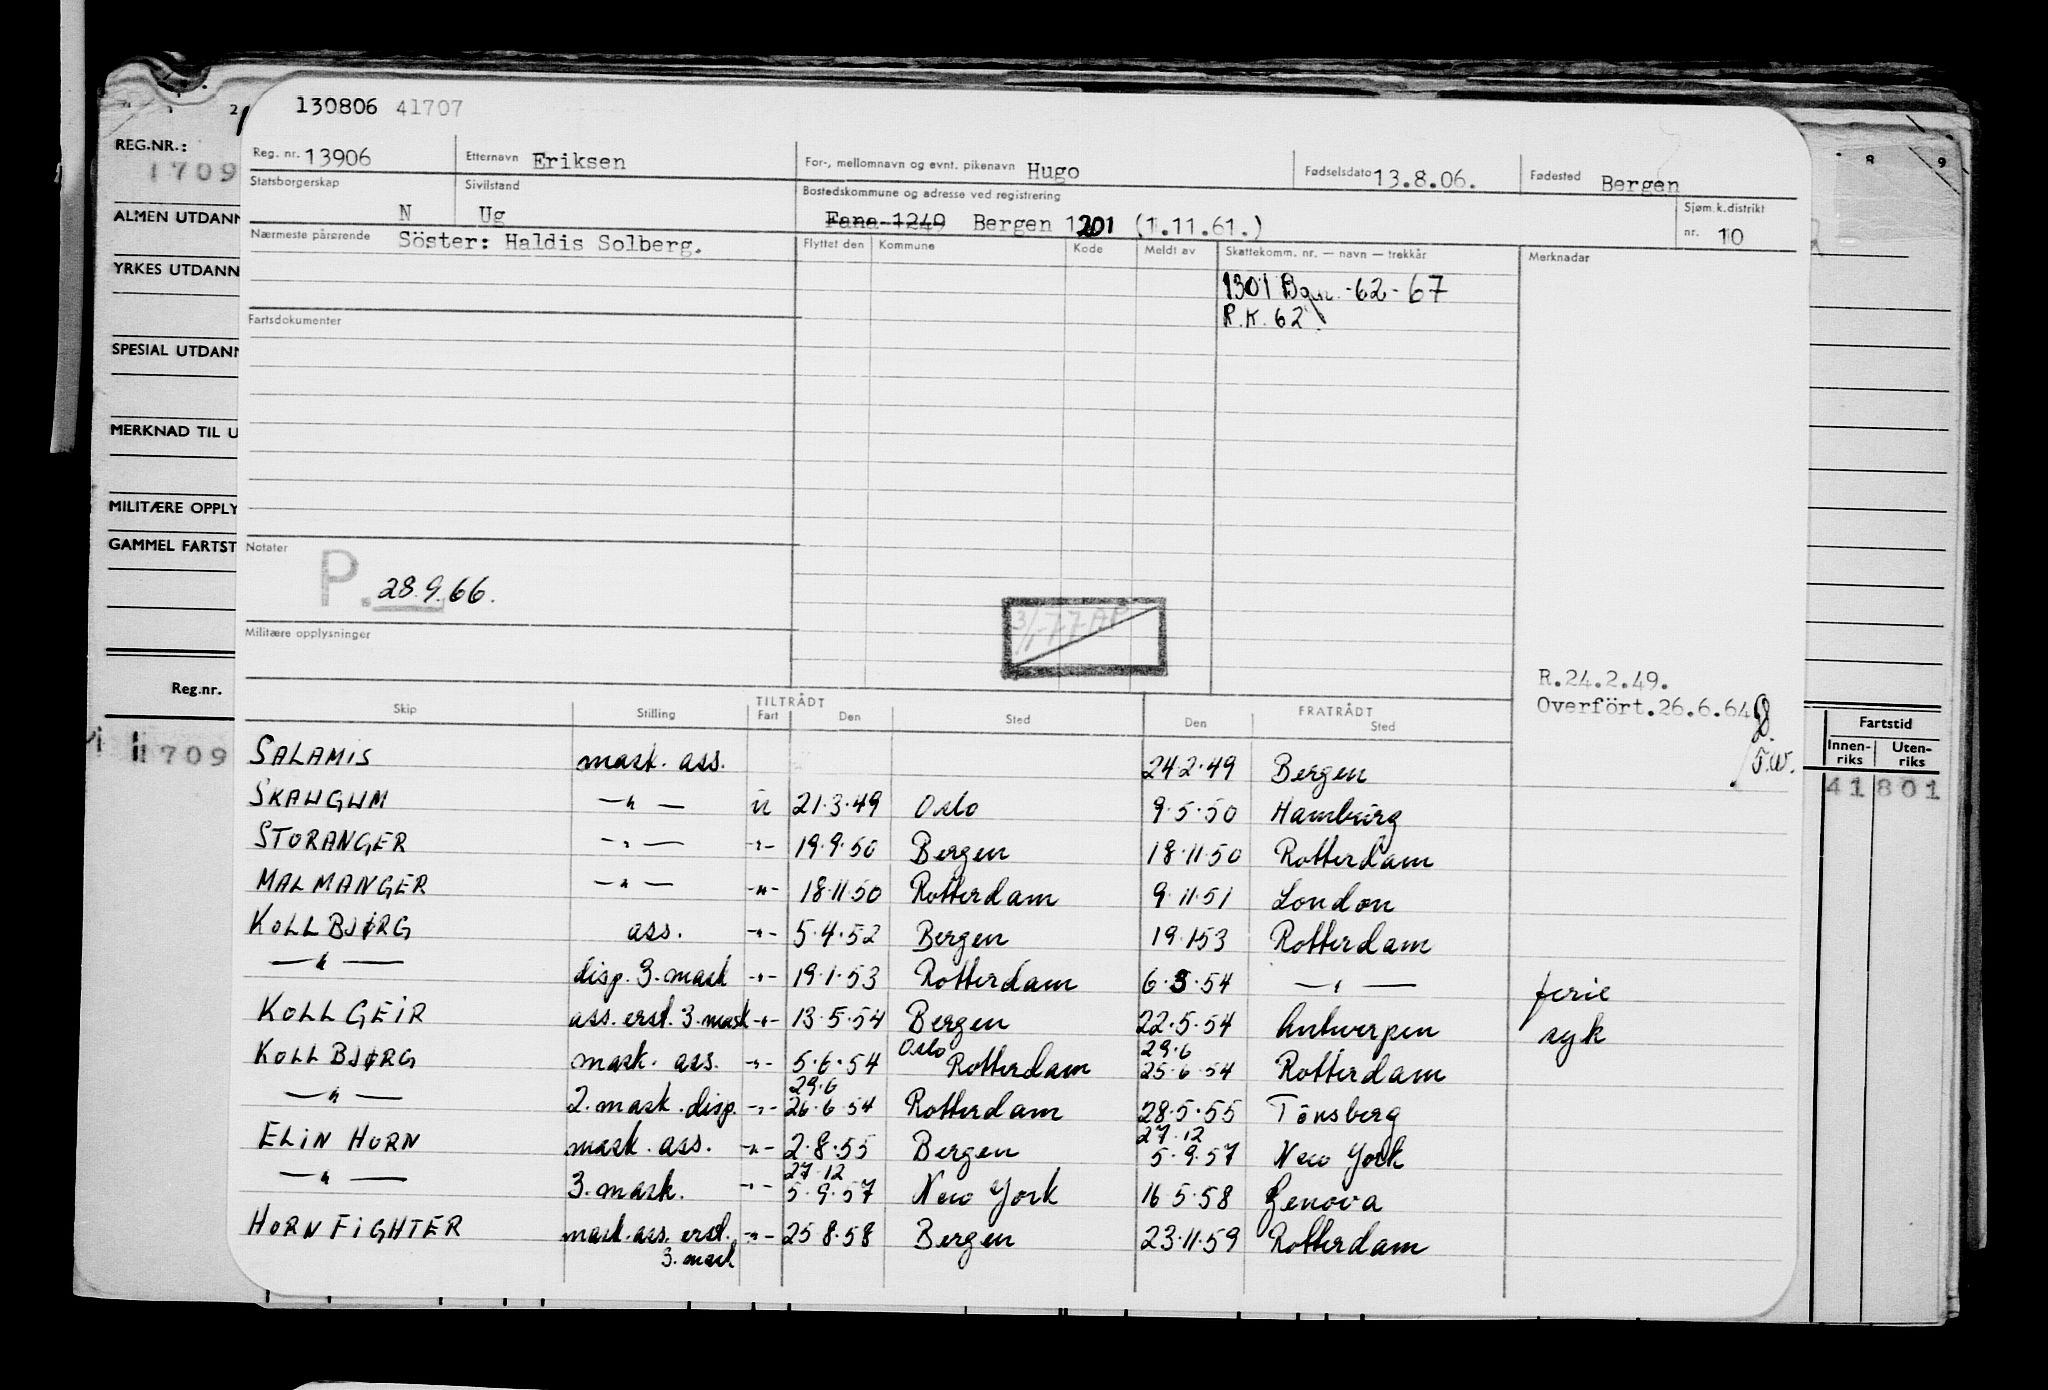 130806 41707
REG.NR.:
1709
Reg. nr. 13906 Etternavn Eriksen For-, mellomnavn og evnt. pikenavn Hugo Fødselsdato 13.8.06. Fødested Bergen
Statsborgerskap N Sivilstand Ug Bostedskommune og adresse ved registrering Fana 1249 Bergen 1201 (1.11.61.) Sjøm.k.distrikt nr. 10
ALMEN UTDANN
Nærmeste pårørende Söster: Haldis Solberg. Flyttet den Kommune Kode Meldt av Skattekomm. nr. — navn — trekkår Merknadar
YRKES UTDANN
1301 -62-67
P.K. 62
Fartsdokumenter
SPESIAL UTDANN
MERKNAD TIL U
MILITÆRE OPPLY
GAMMEL FARTST
Notater
P. 28.9.66.
Militære opplysninger
R.24.2.49.
Overfört.26.6.64
T.W.
Reg.nr.
1709
Fartstid
Innen-riks Uten-riks
41801
TILTRÅDT FRATRÅDT
Skip Stilling Fart Den Sted Den Sted
SALAMIS mask. ass. 24.2.49 Bergen
SKAUGUM —"— u 21.3.49 Oslo 9.5.50 Hamburg
STORANGER —"— -"- 19.9.50 Bergen 18.11.50 Rotterdam
MALMANGER —"— -"- 18.11.50 Rotterdam 9.11.51 London
KOLLBJØRG ass. -"- 5.4.52 Bergen 19.1.53 Rotterdam
—"— disp. 3. mask -"- 19.1.53 Rotterdam 6.3.54 —"— ferie
KOLLGEIR ass. erst. 3. mask -"- 13.5.54 Bergen 22.5.54 Antwerpen syk
KOLLBJØRG mask. ass. -"- 5.6.54 Oslo Rotterdam 29.6 25.6.54 Rotterdam
—"— 2. mask. disp. -"- 29.6 26.6.54 Rotterdam 28.5.55 Tönsberg
ELIN HORN mask. ass. -"- 2.8.55 Bergen 27.12 5.9.57 New York
—"— 3. mask. -"- 27.12 5.9.57 New York 16.5.58 Genova
HORN FIGHTER mask. ass. erst. 3. mask -"- 25.8.58 Bergen 23.11.59 Rotterdam